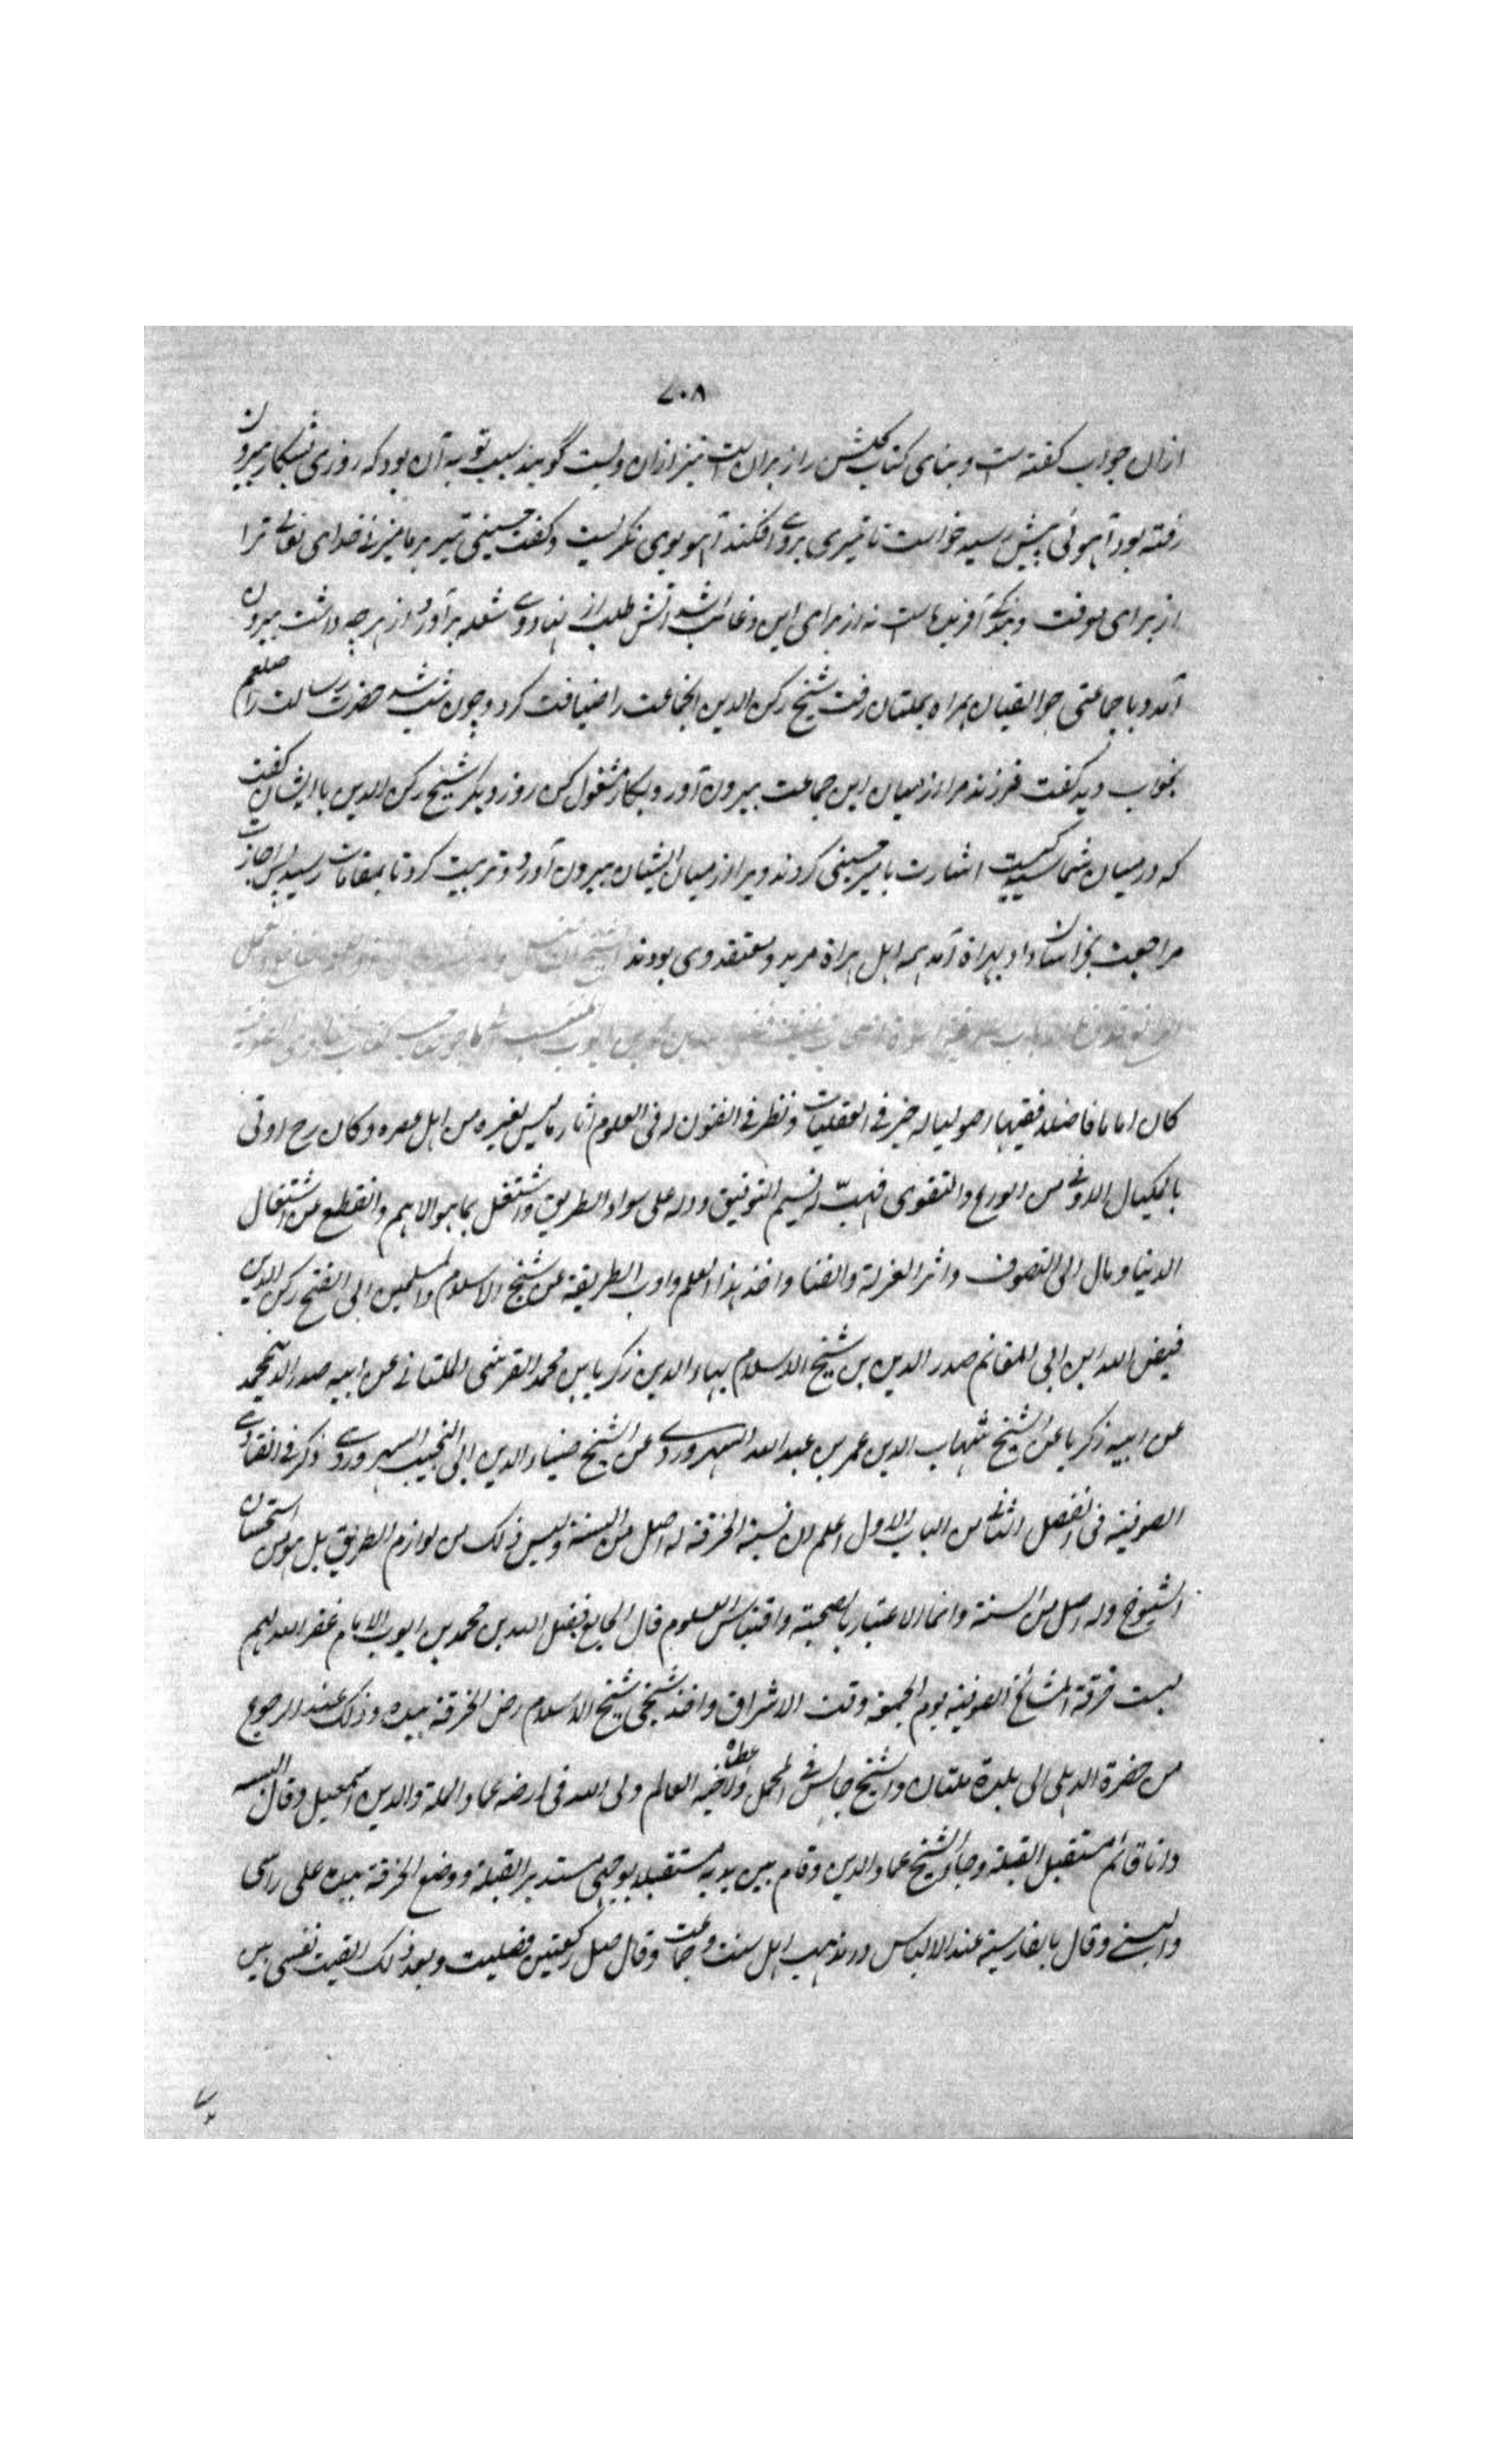 ۷۰۸
ازان جواب گفته است و بنای کتاب گلشن راز بران است نیز ازان ویست گویند سبب توبه آن بود که روزی بشکار بیرون
رفته بود آهوئی پیش رسید خواست تا تیری بروے افکند آهو بوی نگریست و گفت حسینی تیر بر ما میزنے خدای تعالے ترا
از برای معرفت و بندگے آفریده است نه از برای این و غائب شد آتش طلب از نهاد وے شعله برآورد و از هرچه داشت بیرون
آمد و با جماعتی جوالقیان همراه بملتان رفت شیخ رکن الدین آنجماعت را ضیافت کرد و چون شب شد حضرت رسالت را صلعم
بخواب دید که گفت فرزند مرا از میان این جماعت بیرون آور و بکار مشغول کن روز دیگر شیخ رکن الدین با ایشان گفت
که در میان شما سید کیست اشارت بامیر حسینی کردند ویرا از میان ایشان بیرون آورد و تربیت کرد تا بمقامات رسید پس اجازت
مراجعت بخراسان داد بهراة آمد همه اهل هراة مرید و معتقد وی بودند
کان اماما فاضلا فقیها اصولیا له خبر فے العقلیات و نظر فے الفنون له فی العلوم آثار ما لیس لغیره من اهل عصره و کان رح اوتی
بالمکیال الاوفے من الورع والتقوی فهبّ له نسیم التوفیق و دله علی سواء الطریق واشتغل بما هو الاهم وانقطع عن اشتغال
الدنیا و مال الی التصوف واثر العزلة والفنا واخذ هذا العلم وادب الطریقة عن شیخ الاسلام والمسلمین ابی الفتح رکن الدین
فیض الله ابن ابی المغانم صدر الدین بن شیخ الاسلام بهاء الدین زکریا بن محمد القرشی الملتانے عن ابیه صدر الدین محمد
عن ابیه زکریا عن الشیخ شهاب الدین عمر بن عبد الله السهروردے عن الشیخ ضیاء الدین ابی النجیب السهروردے ذکر فے الفتاوے
الصوفیة فی الفصل الثانے من الباب الاول اعلم ان نسبة الخرقة له اصل من السنة ولیس ذلک من لوازم الطریق بل هو من استحسان
الشیوخ وله اصل من السنة وانما الاعتبار بالصحبة واقتباس العلوم قال الجامع فضل الله بن محمد بن ایوب الامام غفر الله لهم
لبست خرقة المشائخ الصوفیة یوم الجمعة وقت الاشراق واخذ شیخی شیخ الاسلام رض الخرقة بیده وذلک عند الرجوع
من حضرة الدهلی الی بلدة ملتان والشیخ جالس فے المحمل عطاه ولاخیه العالم ولی الله فی ارضه عماد الملة والدین اسمعیل وقال البسه
وانا قائم مستقبل القبلة وجاء الشیخ عماد الدین وقام بین یدیه مستقبلا بوجهی مستدبر القبلة ووضع الخرقة بیده علی راسی
والبسنے وقال بالفارسیة عند الالباس در مذهب اهل سنت و جماعت وقال صل رکعتین فصلیت وبعد ذلک القیت نفسی بین